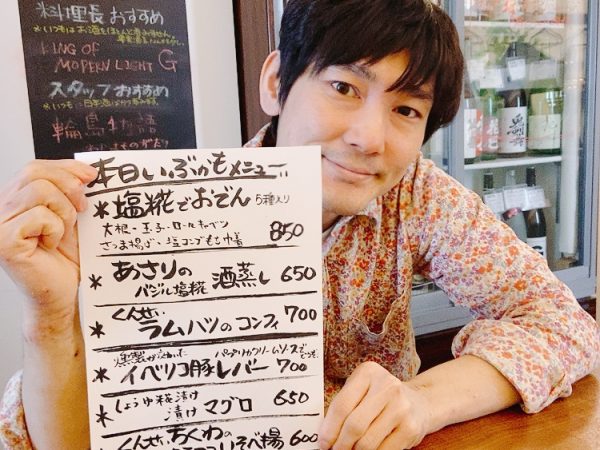 料理長おすすめ
KING OF
MODERN LIGHT G
スタッフおすすめ
輪島物語
本日いぶかもメニュー
*塩糀でおでん 5種入り
大根・玉子・ロールキャベツ
さつま揚げ・塩コンブもち巾着 850
*あさりの
バジル塩糀 酒蒸し 650
*くんせい
ラムハツのコンフィ 700
パプリカクリームソースで
*イベリコ豚レバー 700
*しょうゆ糀漬け
漬けマグロ 650
*くんせいちくわの
いそべ揚 600